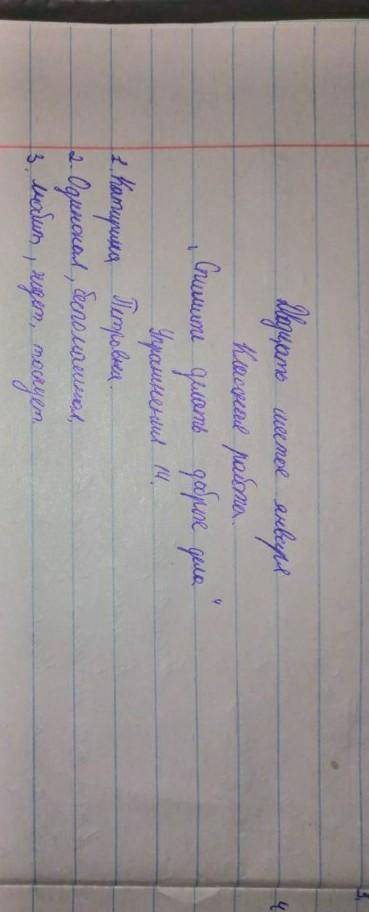 Двадцать шестое января
Классная работа.
„Спешите делать добрые дела"
Упражнения 14.
1. Катерина Петровна.
2. Одинокая, беспомощная,
3. любит, ждет, тоскует